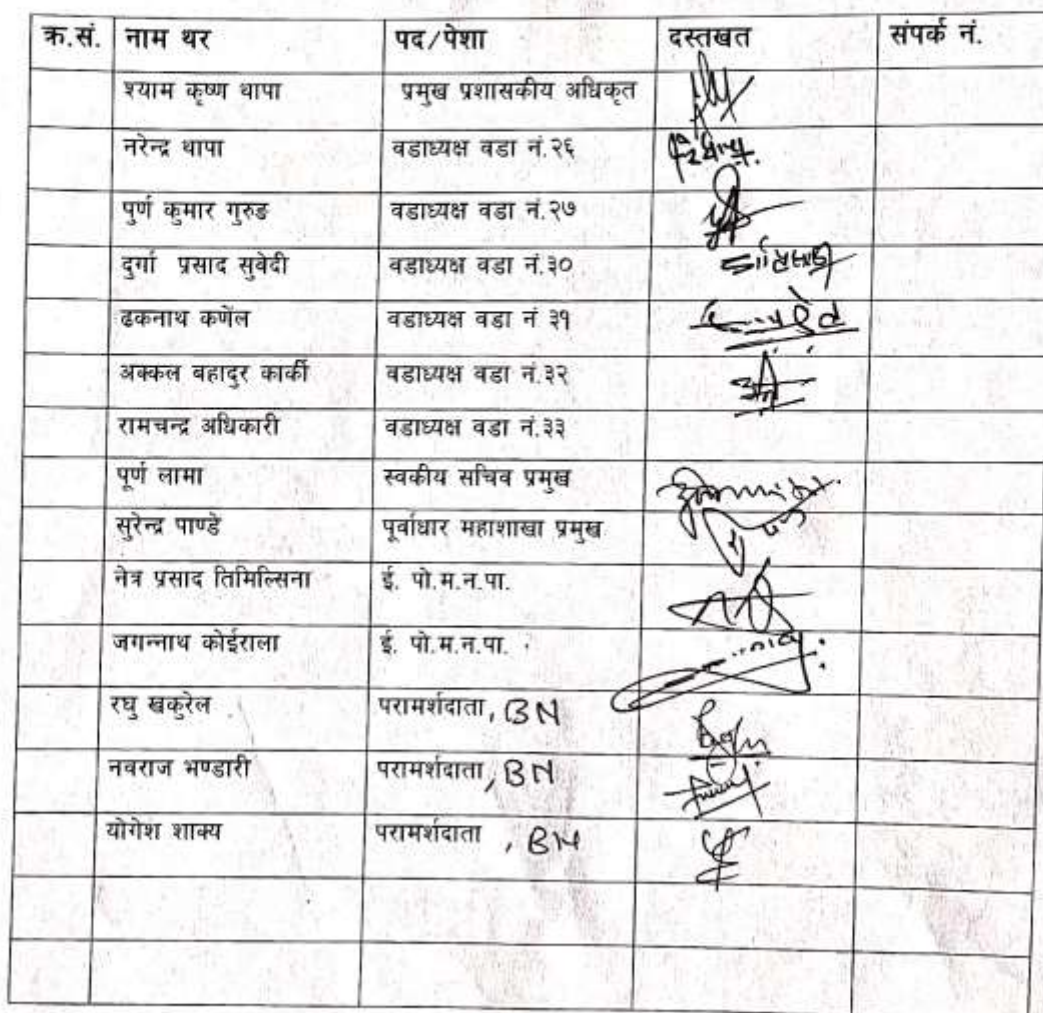 क्र.सं. नाम थर पद/पेशा दस्तखत संपर्क नं.
श्याम कृष्ण थापा प्रमुख प्रशासकीय अधिकृत
नरेन्द्र थापा वडाध्यक्ष वडा नं.२६
पुर्ण कुमार गुरुङ वडाध्यक्ष वडा नं.२७
दुर्गा प्रसाद सुवेदी वडाध्यक्ष वडा नं.३०
ढकनाथ कणेंल वडाध्यक्ष वडा नं ३१
अक्कल बहादुर कार्की वडाध्यक्ष वडा नं.३२
रामचन्द्र अधिकारी वडाध्यक्ष वडा नं.३३
पूर्ण लामा स्वकीय सचिव प्रमुख
सुरेन्द्र पाण्डे पूर्वाधार महाशाखा प्रमुख
नेत्र प्रसाद तिमिल्सिना ई. पो.म.न.पा.
जगन्नाथ कोईराला ई. पो.म.न.पा.
रघु खकुरेल परामर्शदाता, BN
नवराज भण्डारी परामर्शदाता, BN
योगेश शाक्य परामर्शदाता , BN